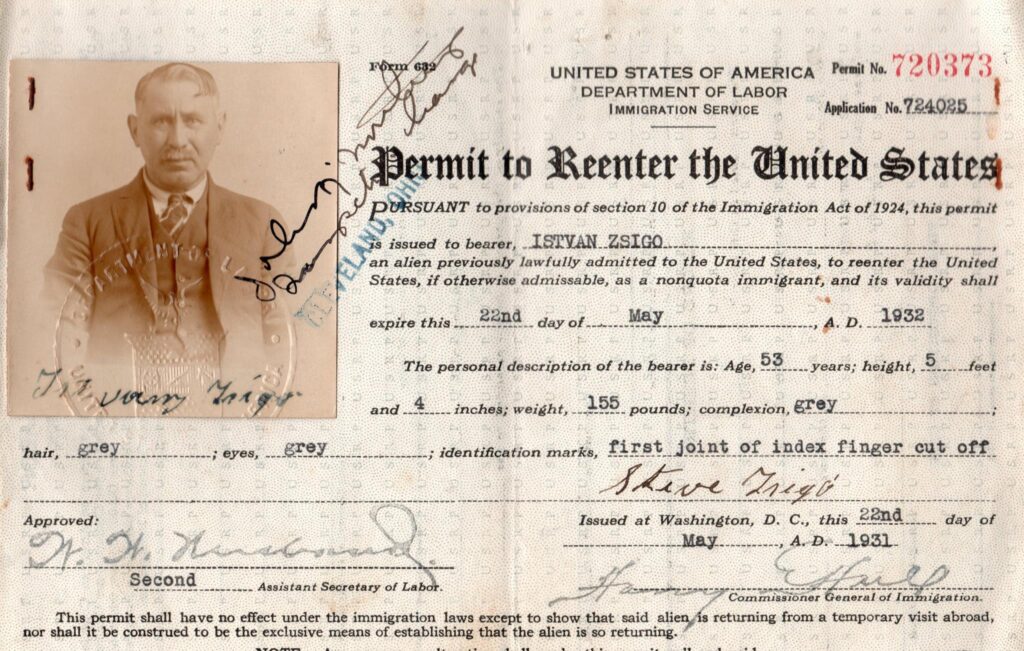 Form 632
UNITED STATES OF AMERICA
DEPARTMENT OF LABOR
IMMIGRATION SERVICE
Permit No. 720373
Application No. 724025
Permit to Reenter the United States
PURSUANT to provisions of section 10 of the Immigration Act of 1924, this permit
is issued to bearer, ISTVAN ZSIGO
an alien previously lawfully admitted to the United States, to reenter the United
States, if otherwise admissable, as a nonquota immigrant, and its validity shall
expire this 22nd day of May, A. D. 1932
The personal description of the bearer is: Age, 53 years; height, 5 feet
and 4 inches; weight, 155 pounds; complexion, grey;
hair, grey; eyes, grey; identification marks, first joint of index finger cut off
CLEVELAND, OHIO
DEPARTMENT OF LABOR
Istvany Zsigo
Steve Zsigó
Approved:
Issued at Washington, D. C., this 22nd day of
May, A. D. 1931
W. W. Husband
Second Assistant Secretary of Labor.
Harry E Hull
Commissioner General of Immigration.
This permit shall have no effect under the immigration laws except to show that said alien is returning from a temporary visit abroad,
nor shall it be construed to be the exclusive means of establishing that the alien is so returning.